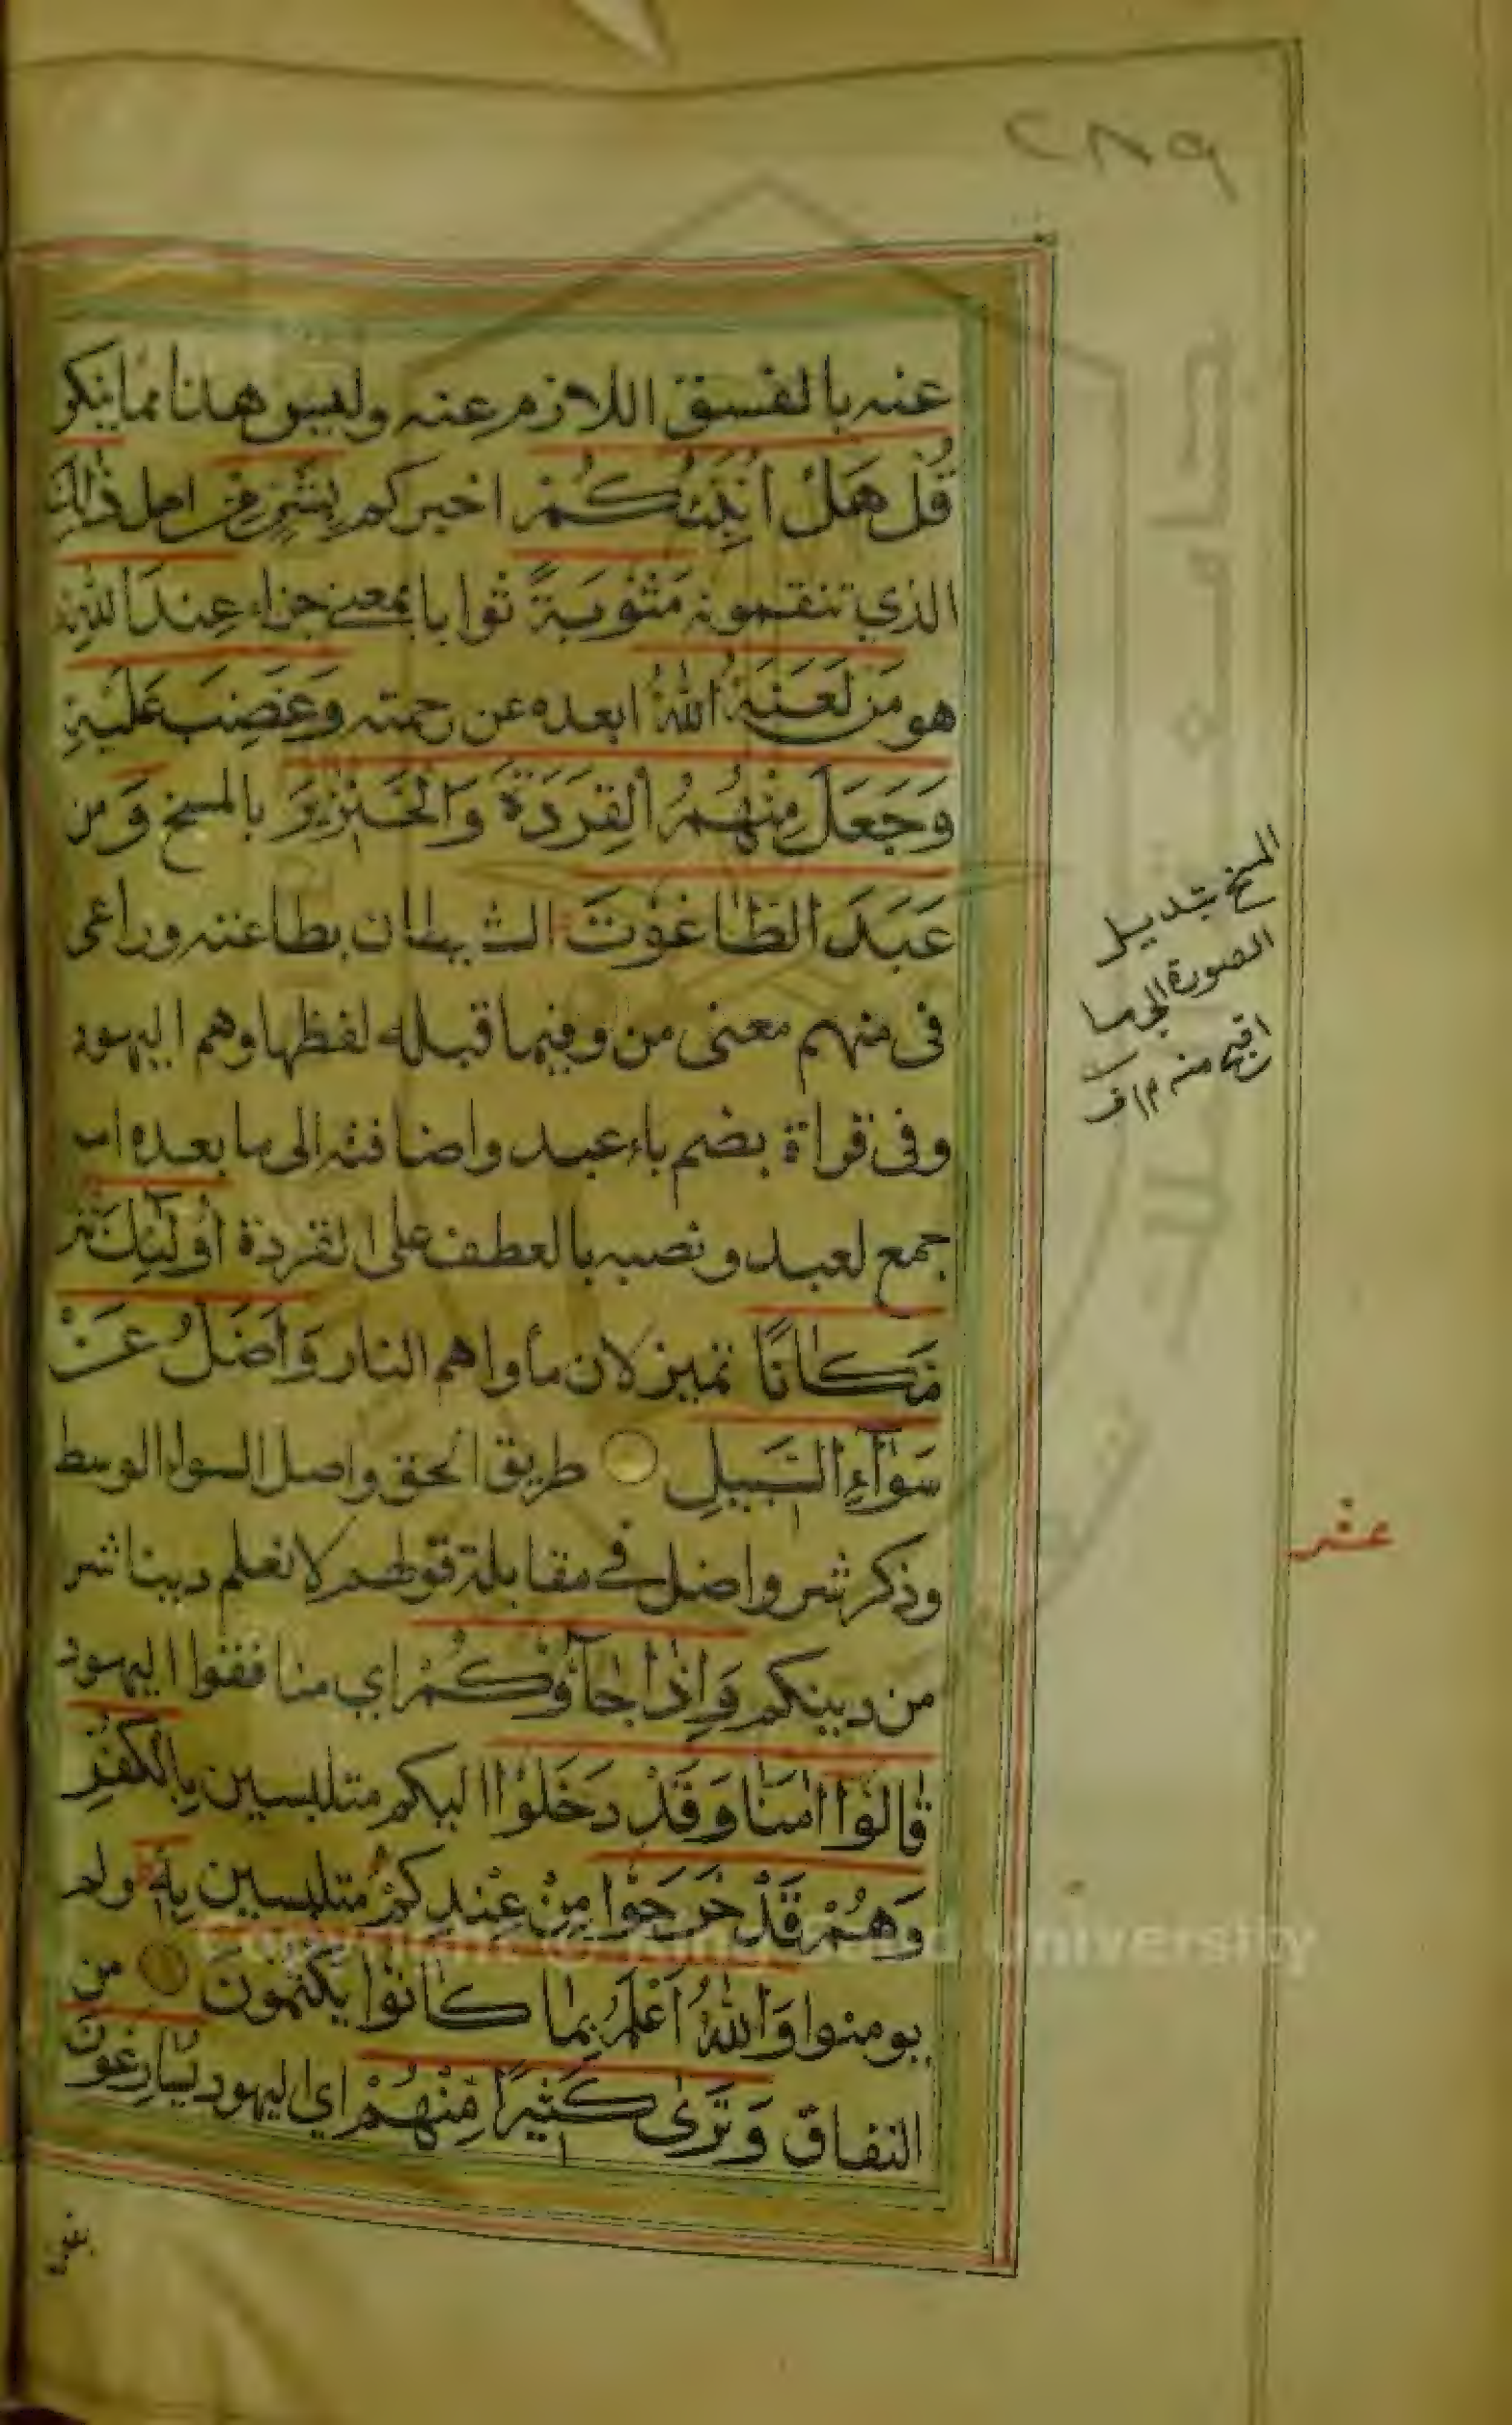 ٢٨٩
عنه بالفسق اللازم عنه وليس هذا مما ينكر
قُلْ هَلْ أُنَبِّئُكُمْ اخبركم بِشَرٍّ مِّن اهل ذَٰلِكَ
الذي تنقمونه مَثُوبَةً ثوابا بمعنى جزاء عِندَ اللَّهِ
هو مَن لَعَنَهُ اللَّهُ ابعده عن رحمته وَغَضِبَ عَلَيْهِ
وَجَعَلَ مِنْهُمُ الْقِرَدَةَ وَالْخَنَازِيرَ بالمسخ وَ من
عَبَدَ الطَّاغُوتَ الشيطان بطاعته وراعى
فى منهم معنى من وفيما قبله لفظها وهم اليهود
وفى قراة بضم باء عبد واضافته الى ما بعده اسم
جمع لعبد ونصبه بالعطف على القردة أُولَٰئِكَ شَرٌّ
مَّكَانًا تمييز لان مأواهم النار وَأَضَلُّ عَنْ
سَوَآءِ السَّبِيلِ طريق الحق واصل السواء الوسط
وذكر شر واضل في مقابلة قولهم لا نعلم دينا شر
من دينكم وَإِذَا جَآؤُكُمْ اي منافقوا اليهود
قَالُوا اٰمَنَّا وَقَدْ دَخَلُوْا اليكم متلبسين بِالْكُفْرِ
وَهُمْ قَدْ خَرَجُوْا مِنْ عِنْدِكُمْ متلبسين بِهٖ ولم
يومنوا وَاللَّهُ أَعْلَمُ بِمَا كَانُوْا يَكْتُمُونَ من
النفاق وَتَرَىٰ كَثِيرًا مِّنْهُمْ اي اليهود يُسَارِعُونَ
المسخ تبديل
الصورة الى ما
اقبح منه
عشر
University